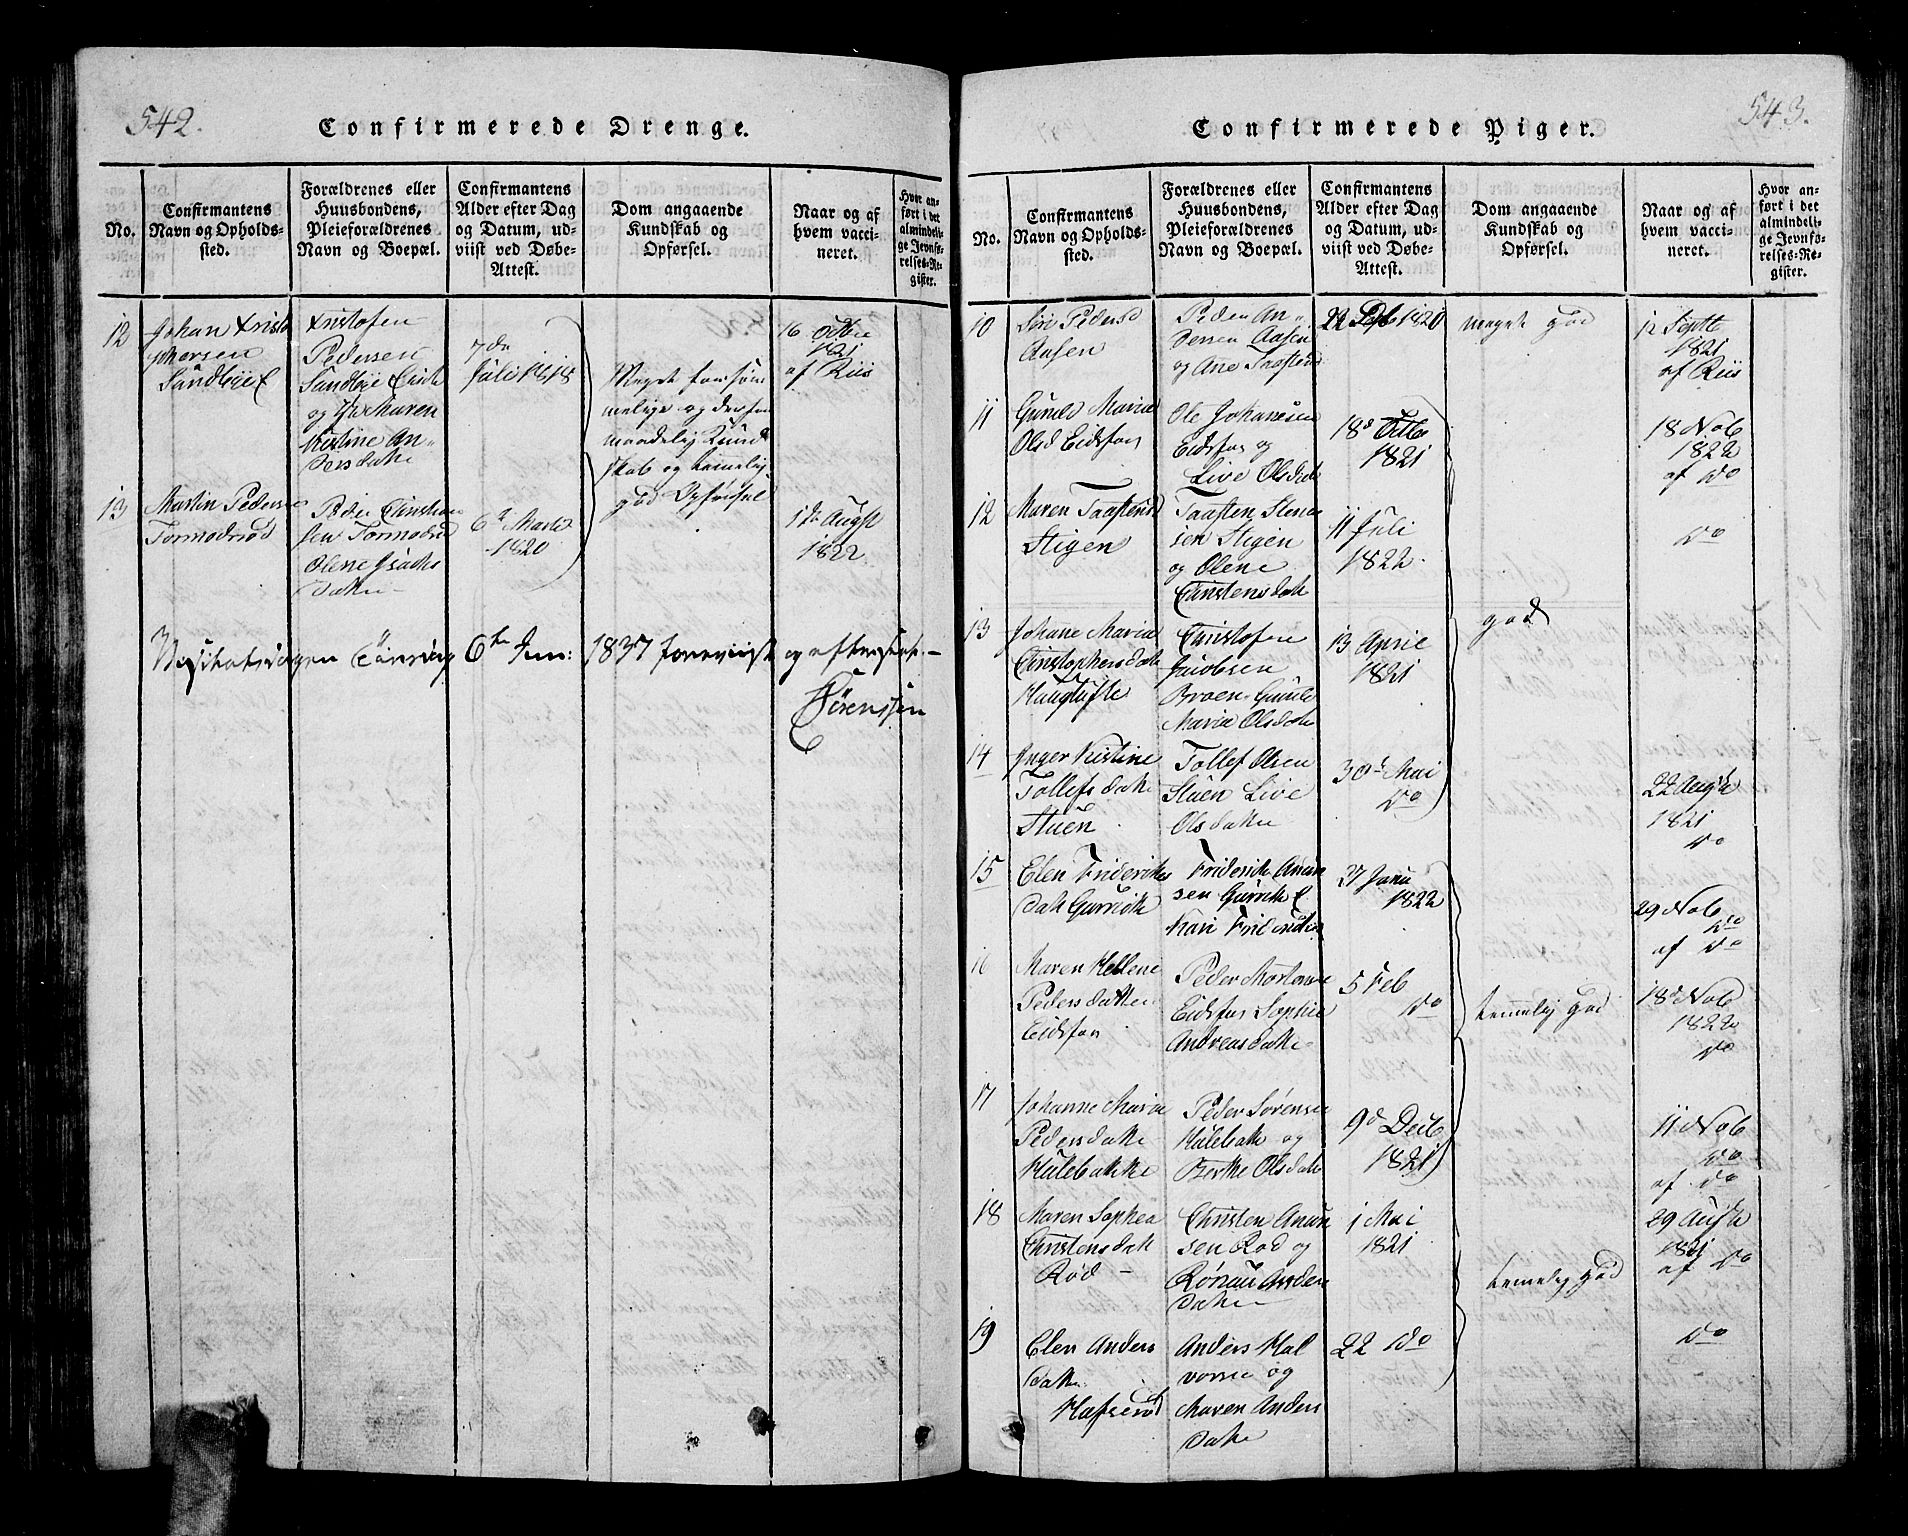 542.
Confirmerede Drenge.
No.
Confirmantens
Navn og Opholds-
sted.
Forældrenes eller
Huusbondens,
Pleieforældrenes
Navn og Boepæl.
Confirmantens
Alder efter Dag
og Datum, ud-
viist ved Døbe-
Attest.
Dom angaaende
Kundskab og
Opførsel.
Naar og af
hvem vacci-
neret.
Hvor an-
ført i det
almindeli-
ge Jevnfø-
relses-Re-
gister.
12
Johan Kristo
phersen
Kristofen
Pedersen
og
Maren
Kirstine An-
dersdatte
7de
Juli 1818
Meget forsøm
melige og derfor
maadelig Kund
skab og temmelig
god Opførsel
16 Octbr
1821
af Riis
13
Martin Peders
Tormodrød
Peder Christian
sen Tormodrød
Olene Isachs
datte
6te Marts
1820
1de Augst
1822
6te Jan: 1837 foreviist og
Sørenssen
543.
Confirmerede Piger.
No.
Confirmantens
Navn og Opholds-
sted.
Forældrenes eller
Huusbondens,
Pleieforældrenes
Navn og Boepæl.
Confirmantens
Alder efter Dag
og Datum, ud-
viist ved Døbe-
Attest.
Dom angaaende
Kundskab og
Opførsel.
Naar og af
hvem vacci-
neret.
Hvor an-
ført i det
almindeli-
ge Jevnfø-
relses-Re-
gister.
10
Siri Pedersd
Aasen
Peder An-
dersen Aasen
og Ane
1820
meget god
12 Septb
1821
af Riis
11
Gunild Maria
Olsd Eidsfos
Ole Johanesen
Eidsfos og
Live Olsdat
18d Octbr
1821
18 Nob
1822
af do
12
Maren Taastensd
Stigen
Taasten Stenes
sen Stigen
og Olene
Christensdatt
11 Juli
1822
do
13
Johane Maria
Christophersdatte
Haugtufte
Christofen
Jacobsen
Braen Gunild
Maria Olsdatte
13 April
1821
god
14
Inger Kirstine
Tollefsdatte
Stuen
Tollef Olsen
Stuen Live
Olsdatte
30d Mai
do
22 Augste
1821
do
15
Elen Frideriks
Friderik
sen
Kari
27 Janu
1822
29 Nob
do
af do
16
Maren Hellene
Pedersdatter
Eidsfos
Peder
Eidsfos Sophie
Andreasdatte
5 Feb
do
temmelig god
18d Nob
1822
do
17
Johanne Maria
Pedersdatte
Hulebakke
Peder Sørensen
Hulebak og
Berthe Olsdatt
9d Decb
1821
11 Nob
do
af do
18
Maren Sophia
Christensdatt
Rød
Christen
sen Rød og
Anders
datte
1 Mai
1821
temmelig god
29 Augste
1821
af do
19
Elen Anders
datte
Hafserød
Anders Hal
vorsen og
Maren Anders
datte
22 do
do